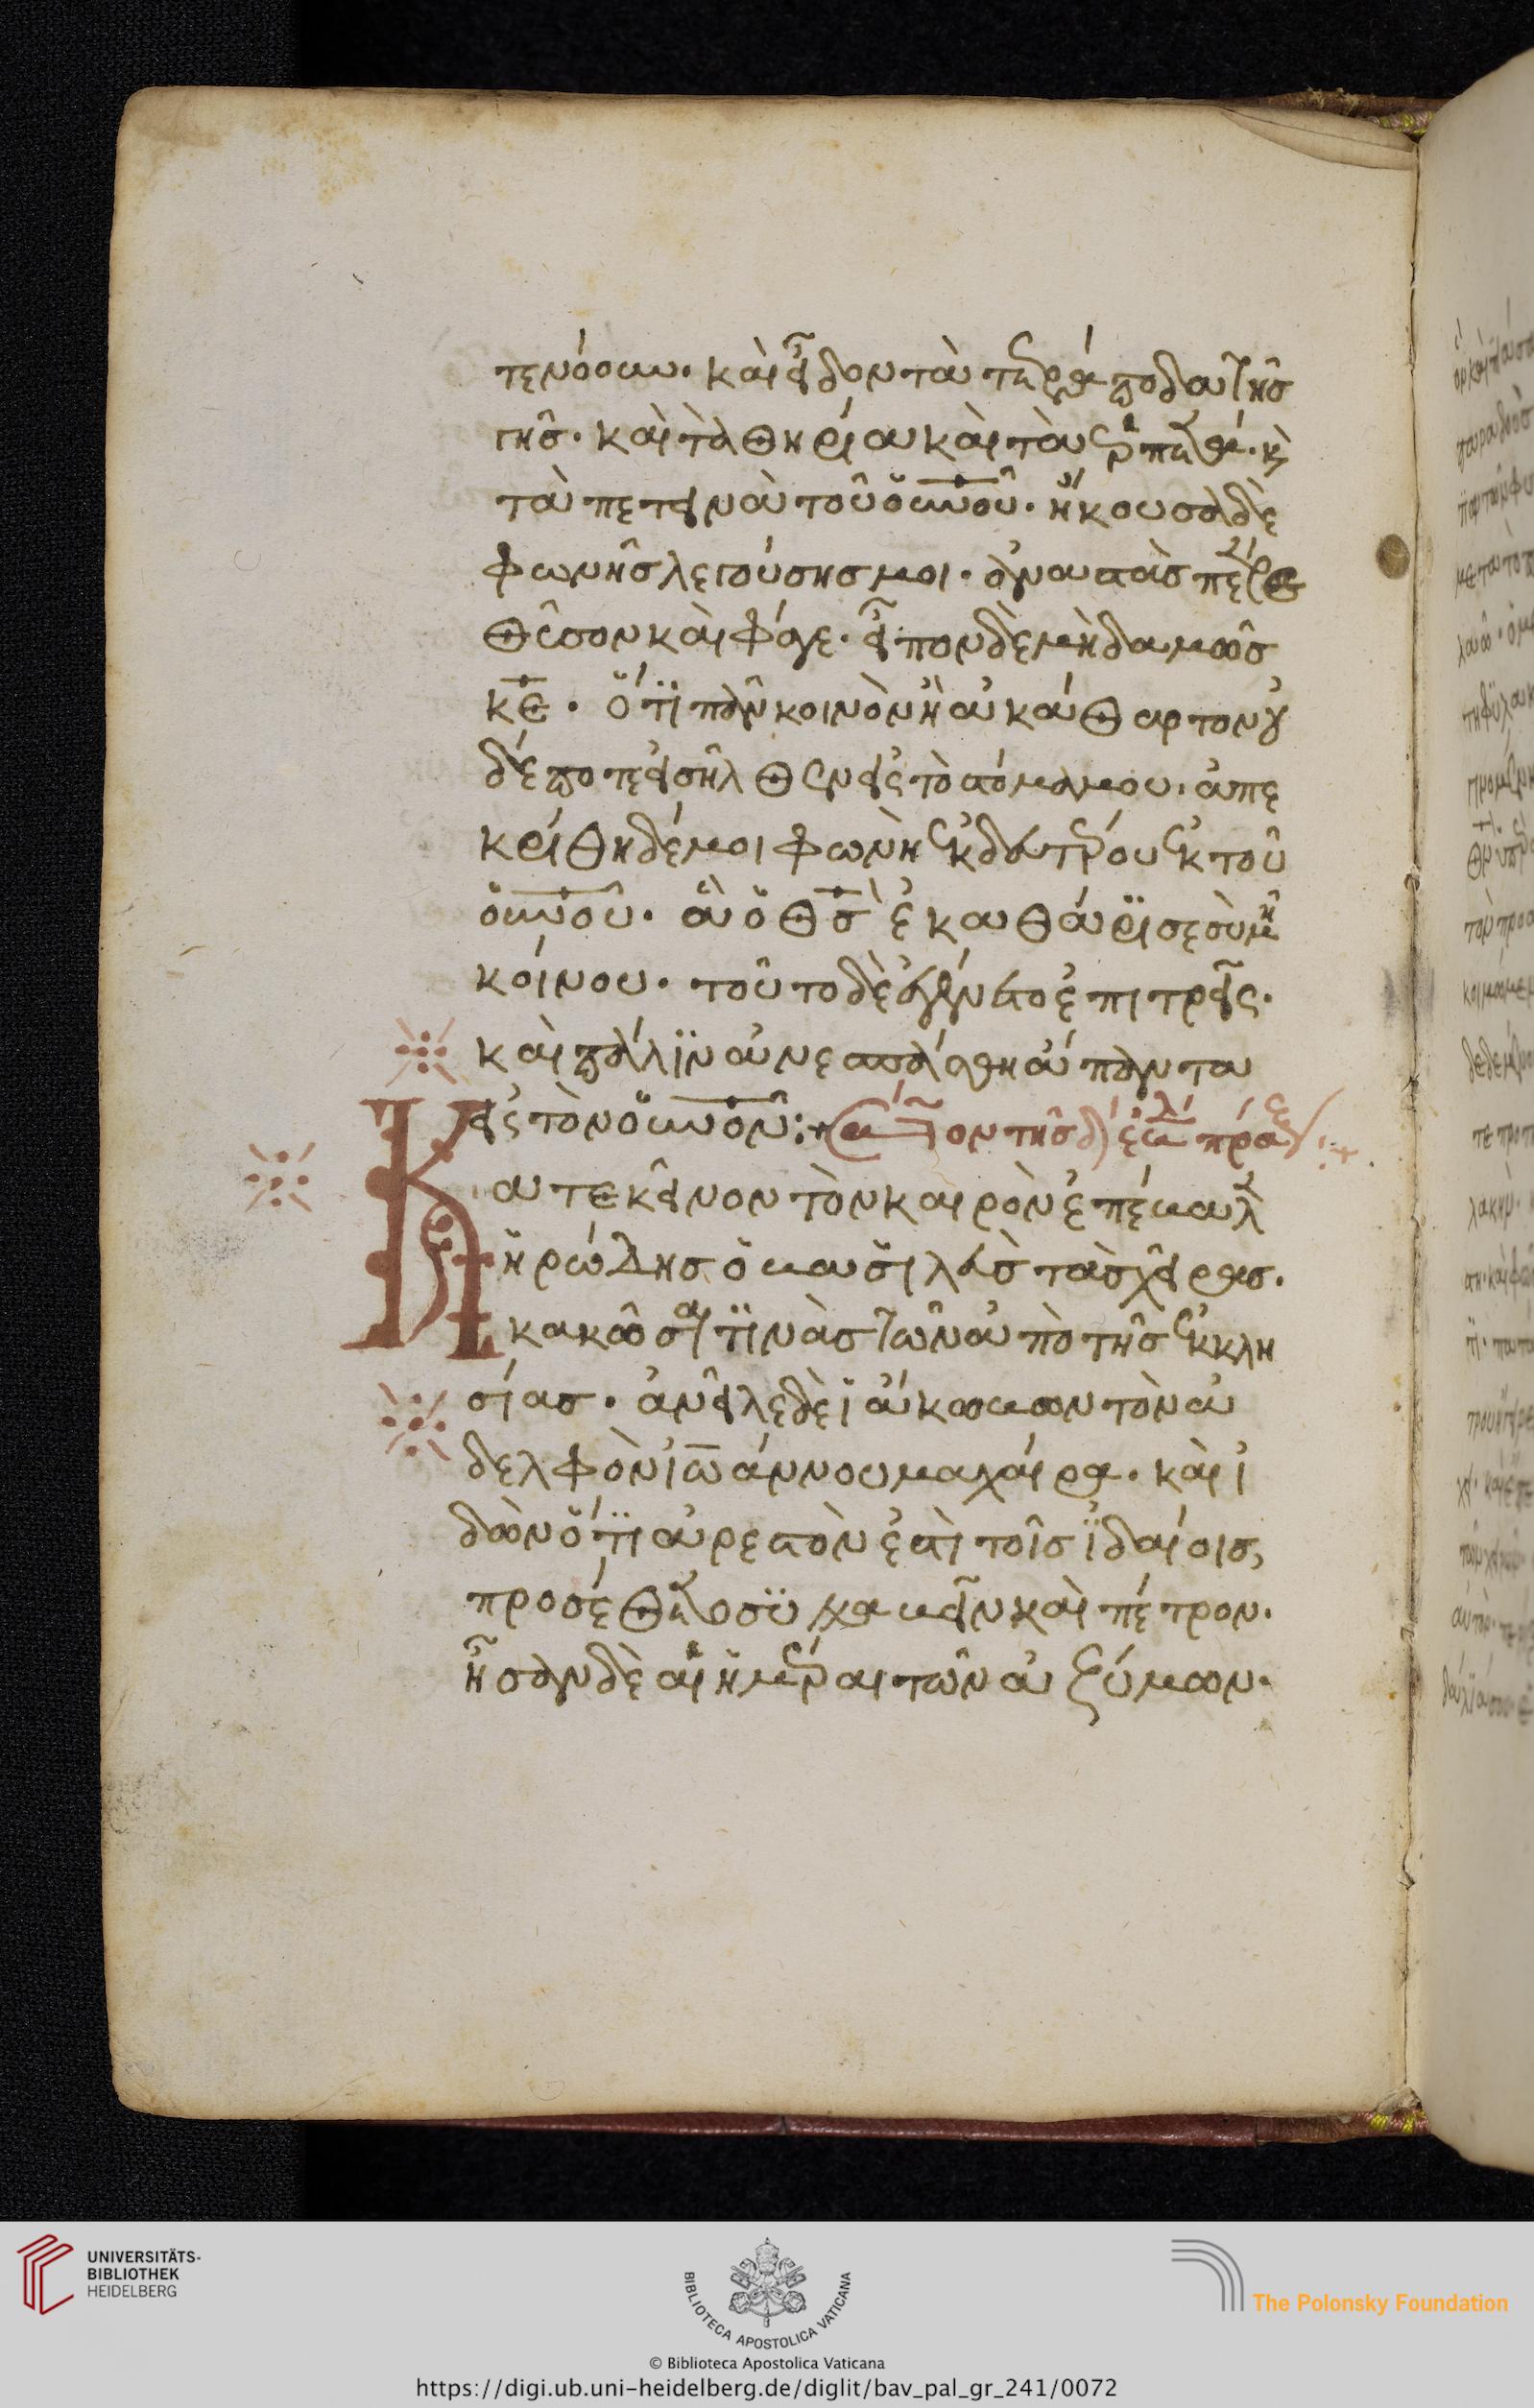 τενόουν· καὶ εἶδον τὰ τετράποδα τῆς
γῆς· καὶ τὰ θηρία καὶ τὰ ἑρπετά· κ
τὰ πετεινὰ τοῦ οὐνοῦ· ἤκουσα δὲ
φωνῆς λεγούσης μοι· ἀναστὰς πέτρε
θῦσον καὶ φάγε· εἶπον δὲ μηδαμῶς
κε· ὅτι πᾶν κοινὸν ἢ ἀκάθαρτον οὐ
δέποτε εἰσῆλθεν εἰς τὸ στόμα μου· ἀπε
κρίθη δέ μοι φωνὴ ἐκ δευτέρου ἐκ τοῦ
οὐνοῦ· ἃ ὁ θς ἐκαθάρισε σὺ μὴ
κοίνου· τοῦτο δὲ ἐγένετο ἐπὶ τρεῖς·
καὶ πάλιν ἀνεσπάσθη ἅπαντα
εἰς τὸν οὐνόν:
Κατ ἐκεῖνον τὸν καιρὸν ἐπέβαλ
ἡρώδης ὁ βασιλεὺς τὰς χεῖρας·
κακῶσαί τινας τῶν ἀπὸ τῆς ἐκκλη
σίας· ἀνεῖλε δὲ ἰάκωβον τὸν ἀ
δελφὸν ἰωάννου μαχαίρα· καὶ ἰ
δὼν ὅτι ἀρεστὸν ἐστὶ τοῖς ἰουδαίοις,
προσέθετο συλλαβεῖν καὶ πέτρον·
ἦσαν δὲ αἱ ἡμέραι τῶν ἀζύμων·
UNIVERSITÄTS-
BIBLIOTHEK
HEIDELBERG
BIBLIOTECA APOSTOLICA VATICANA
The Polonsky Foundation
© Biblioteca Apostolica Vaticana
https://digi.ub.uni-heidelberg.de/diglit/bav_pal_gr_241/0072